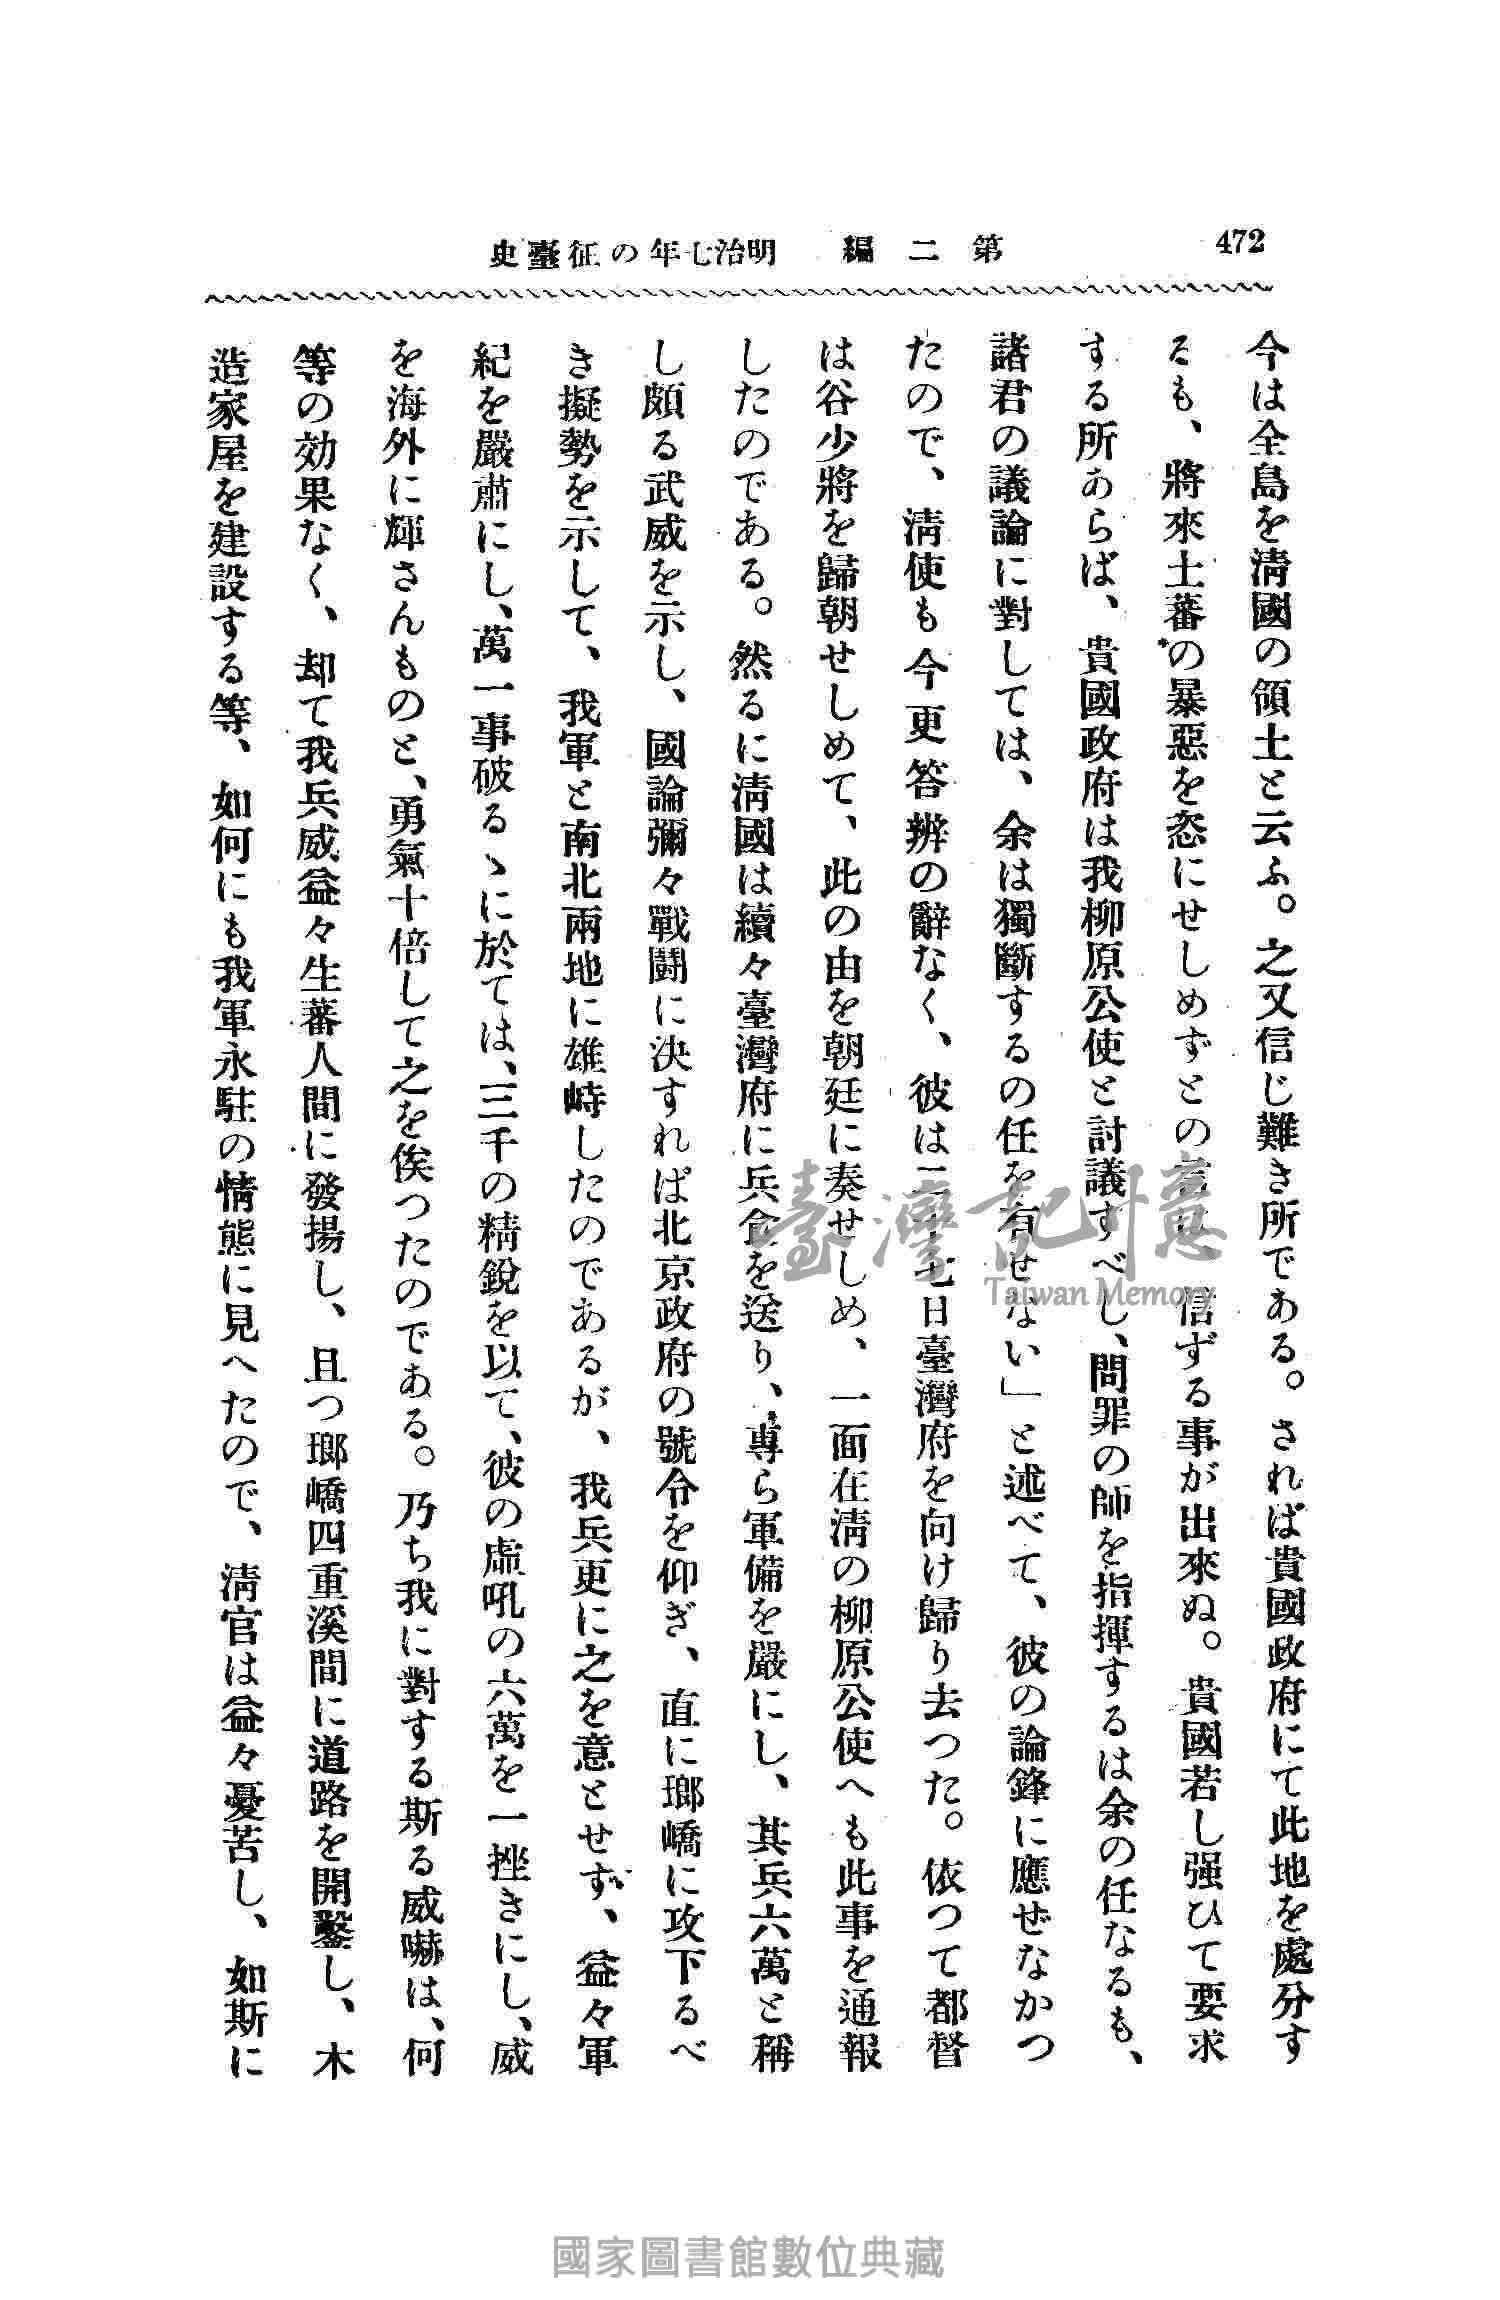 472
第二編 明治七年の征臺史
今は全島を淸國の領土と云ふ。之又信じ難き所である。されば貴國政府にて此地を處分す
るも、將來土蕃の暴惡を恣にせしめずとの言は、信ずる事が出來ぬ。貴國若し强ひて要求
する所あらば、貴國政府は我柳原公使と討議すべし、問罪の師を指揮するは余の任なるも、
諸君の議論に對しては、余は獨斷するの任を有せない」と述べて、彼の論鋒に應ぜなかつ
たので、淸使も今更答辨の辭なく、彼は二十七日臺灣府を向け歸り去つた。依つて都督
は谷少將を歸朝せしめて、此の由を朝廷に奏せしめ、一面在淸の柳原公使へも此事を通報
したのである。然るに淸國は續々臺灣府に兵食を送り、專ら軍備を嚴にし、其兵六萬と稱
し頗る武威を示し、國論彌々戰鬪に決すれば北京政府の號令を仰ぎ、直に瑯嶠に攻下るべ
き擬勢を示して、我軍と南北兩地に雄峙したのであるが、我兵更に之を意とせず、益々軍
紀を嚴肅にし、萬一事破るゝに於ては、三千の精銳を以て、彼の虛吼の六萬を一挫きにし、威
を海外に輝さんものと、勇氣十倍して之を俟つたのである。乃ち我に對する斯る威嚇は、何
等の効果なく、却て我兵威益々生蕃人間に發揚し、且つ瑯嶠四重溪間に道路を開鑿し、木
造家屋を建設する等、如何にも我軍永駐の情態に見へたので、淸官は益々憂苦し、如斯に
臺灣記憶
Taiwan Memory
國家圖書館數位典藏